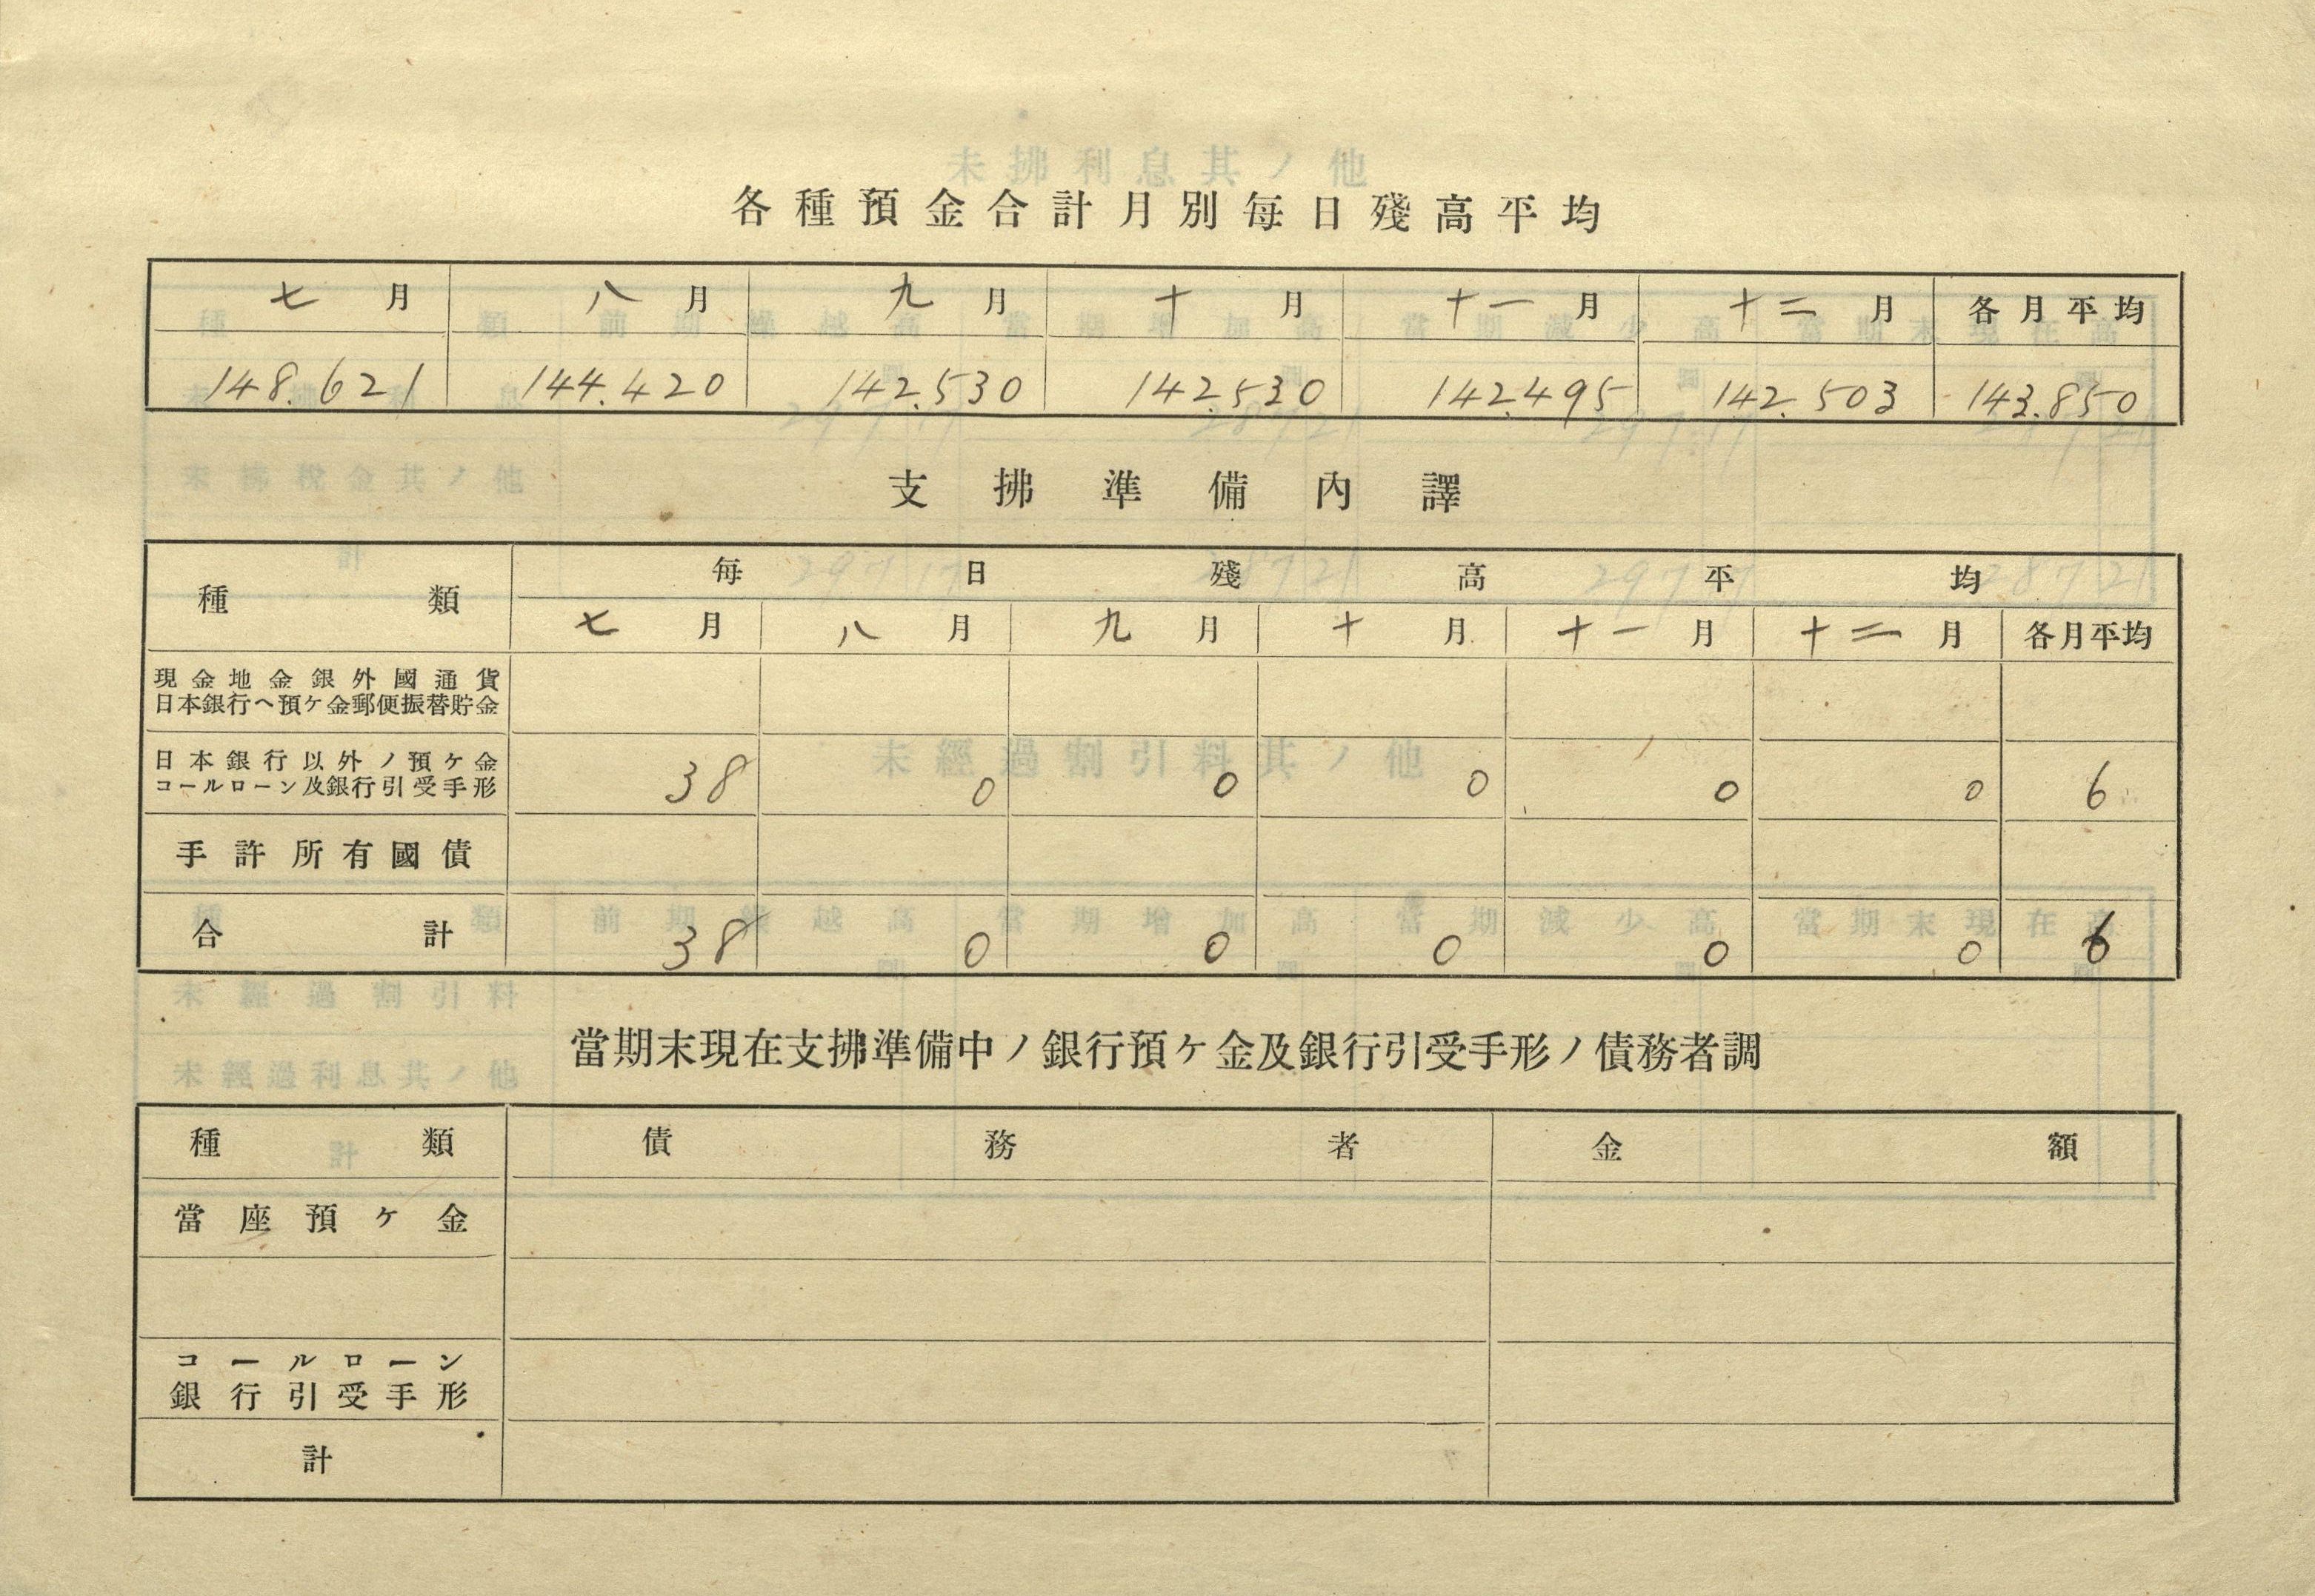 各種預金合計月別每日殘高平均
七月 八月 九月 十月 十一月 十二月 各月平均
148.621 144.420 142.530 142.530 142.495 142.503 143.850
支拂準備內譯
種類 每日殘高平均
七月 八月 九月 十月 十一月 十二月 各月平均
現金地金銀外國通貨
日本銀行ヘ預ケ金郵便振替貯金
日本銀行以外ノ預ケ金
コールローン及銀行引受手形 38 0 0 0 0 0 6
手許所有國債
合計 38 0 0 0 0 0 6
當期末現在支拂準備中ノ銀行預ケ金及銀行引受手形ノ債務者調
種類 債務者 金額
當座預ケ金
コールローン
銀行引受手形
計